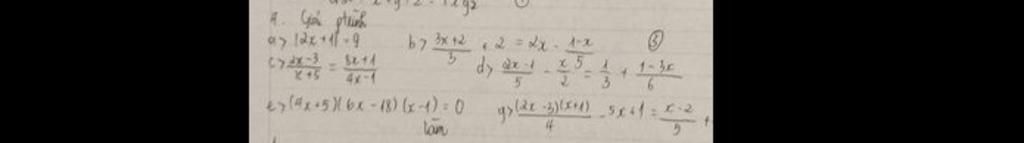 4. Giải ptrình
a> |2x+1| = 9 b> \frac{3x+2}{5} + 2 = 2x - \frac{1-x}{5} ③
c> \frac{2x-3}{x+5} = \frac{3x+1}{4x-1} d> \frac{2x-1}{5} - \frac{x}{2} = \frac{1}{3} + \frac{1-3x}{6}
e> (4x+5)(6x-18)(x-1) = 0 g> \frac{(2x-3)(x+1)}{4} - 5x+1 = \frac{x-2}{5} +
làm